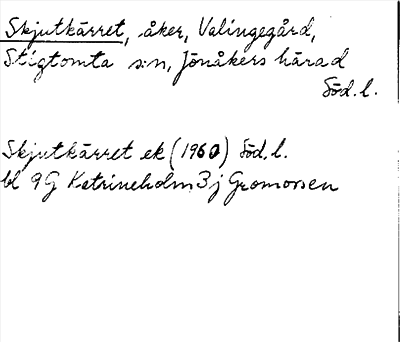 Skjutkärret, åker, Valingegård,
Stigtomta s:n, Jönåkers härad
Söd. l.
Skjutkärret ek (1960) Söd. l.
bl 9G Katrineholm 3j Gromossen